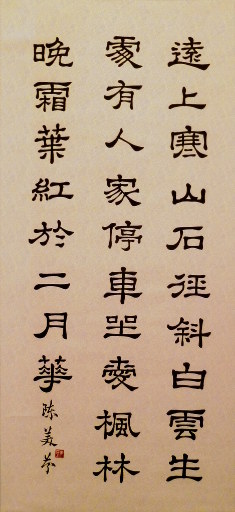 遠上寒山石徑斜白雲生
處有人家停車坐愛楓林
晚霜葉紅於二月華
陈美芬